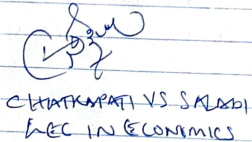 CHATKAPATI VS SALADI
LEC IN ECONOMICS